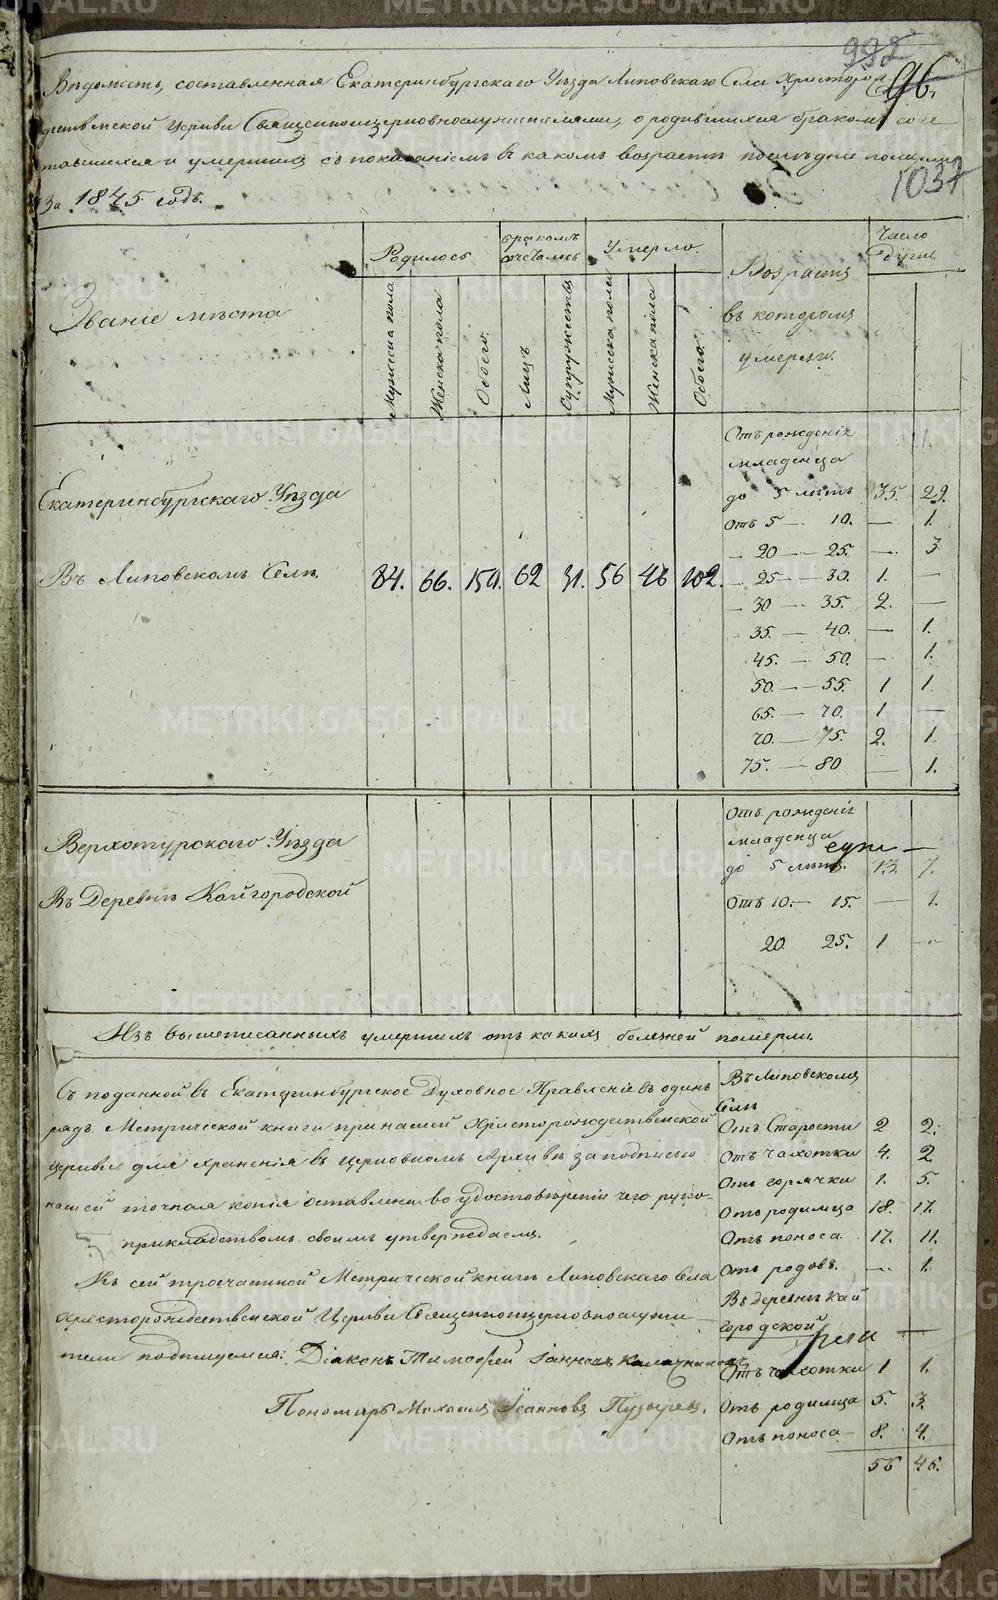 METRIKI.GASO-URAL.RU
992
96.
Вѣдомость, составленная Екатеринбургскаго Уѣзда Липовскаго Села Христорож
дественской Церкви Священноцерковнослужителями, о родившихся бракомъ соче
тавшихся и умершихъ съ показаніемъ въ какомъ возрастѣ послѣдніе померли
За 1845 годъ.
1037
Званіе мѣста
Родилось
бракомъ сочеталось
Умерло
Возрастъ въ которомъ умерли.
Число душъ
Мужеска пола
Женска пола
Обоего.
Лицъ
Супружествъ
Мужеска пола
Женска пола
Обоего.
Екатеринбургскаго Уѣзда
Въ Липовскомъ Селѣ. 84. 66. 150. 62 31. 56 46 102.
Отъ рожденія
младенца
до 5 лѣтъ 35. 29.
Отъ 5 — 10. — 1.
— 20 — 25. — 3
— 25 — 30. 1. —
— 30 — 35. 2. —
35. — 40. — 1.
45. — 50. — 1.
50. — 55. 1 1.
65. — 70. 1 —
70. — 75. 2. 1.
75. — 80 — 1.
Верхотурскаго Уѣзда
Въ Деревнѣ Кайгородской
Отъ рожденія
младенца
до 5 лѣтъ. 13. 7.
Отъ 10. — 15. — 1.
20 25. 1 —
Изъ вышеписанныхъ умершихъ отъ какихъ болезней померли.
Съ поданной въ Екатеринбургское Духовное Правленіе въ одинъ
рядъ Метрической книги при нашей Христорождественской
церкви для храненія въ церковномъ Архивѣ за подписью
нашей точная копія оставлена во удостовѣреніи чего руко-
прикладствомъ своимъ утверждаемъ.
Къ сей троечастной Метрической книгѣ Липовскаго Села
Христорождественской Церкви Священноцерковнослужи
тели подпишемся: Діаконъ Тимофей Іанновъ
Пономарь Михаилъ Іоанновъ Пузыревъ.
Въ Липовскомъ
Селѣ
Отъ Старости 2 2.
Отъ чахотки 4. 2
Отъ горячки 1. 5.
Отъ родимца 18. 17.
Отъ поноса 17. 11.
Отъ родовъ. — 1.
Въ деревнѣ Кай
городской
Отъ чахотки 1 1.
Отъ родимца 5. 3.
Отъ поноса — 8. 4.
56 46.